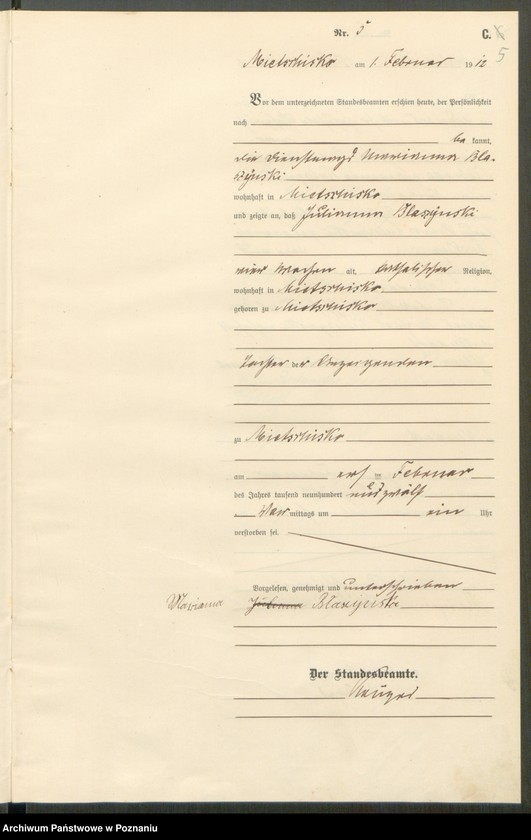 Nr. 5 C.
5
Mietschisko am 1. Februar 1912
Vor dem unterzeichneten Standesbeamten erschien heute, der Persönlichkeit
nach
be kannt,
die Dienstmagd Marianna Bla-
szynski
wohnhaft in Mietschisko
und zeigte an, daß Julianna Blaszynski
vier Wochen alt, katholischer Religion,
wohnhaft in Mietschisko
geboren zu Mietschisko
Tochter der Anzeigenden
zu Mietschisko
am ersten Februar
des Jahres tausend neunhundert und zwölf
Vor mittags um ein Uhr
verstorben sei.
Vorgelesen, genehmigt und unterschrieben
Marianna Julianna Blaszynska
Der Standesbeamte.
Archiwum Państwowe w Poznaniu